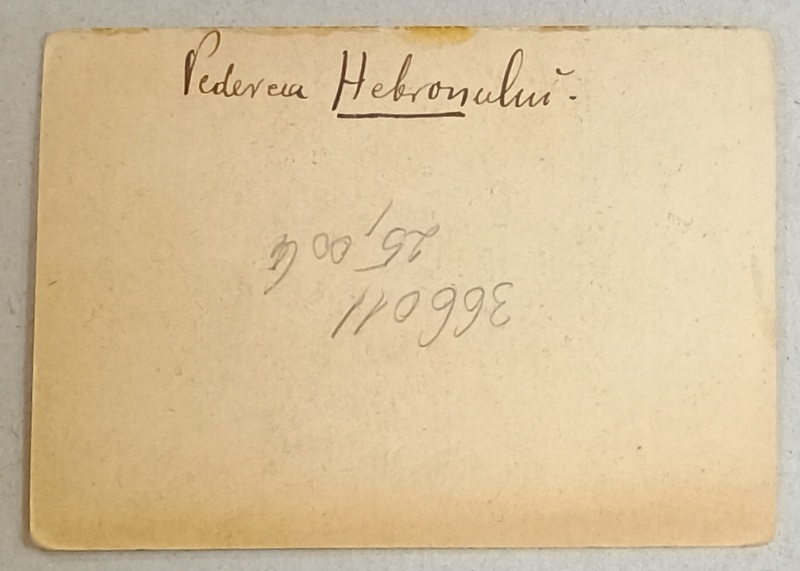 Vederea Hebronuluĭ.
366011
25,00 €